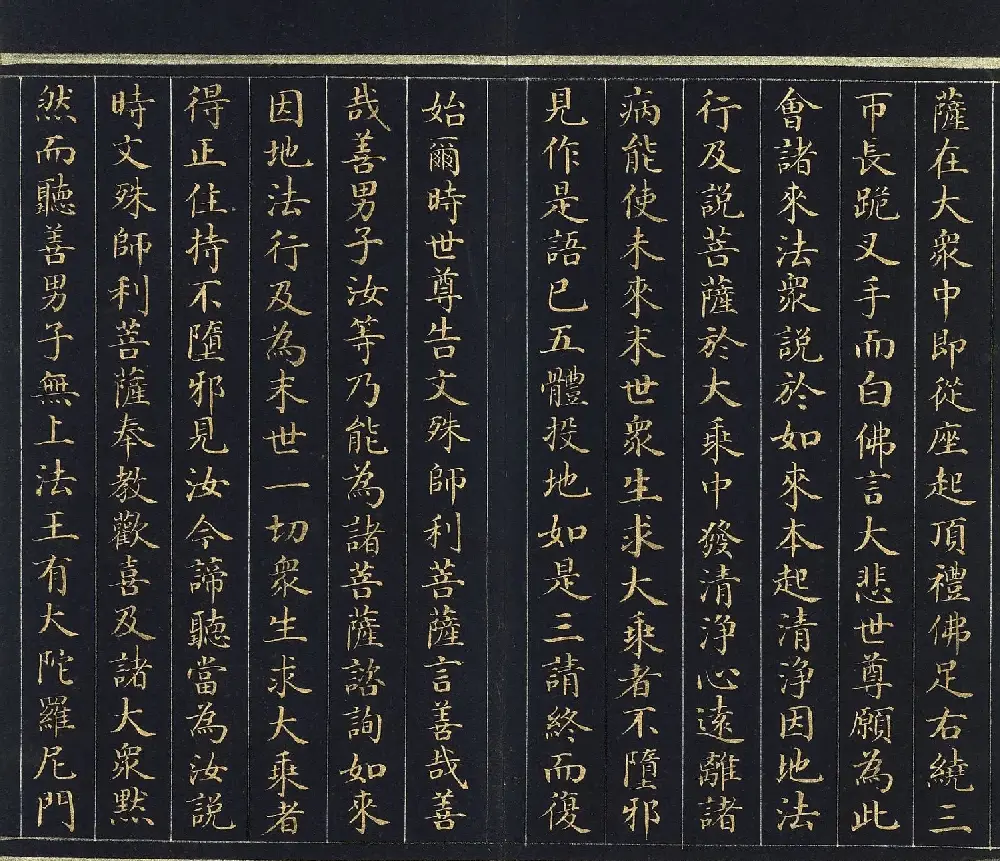 薩在大衆中即從座起頂禮佛足右繞三
帀長跪叉手而白佛言大悲世尊願為此
會諸來法衆說於如來本起清淨因地法
行及說菩薩於大乘中發清淨心遠離諸
病能使未來末世衆生求大乘者不墮邪
見作是語已五體投地如是三請終而復
始爾時世尊告文殊師利菩薩言善哉善
哉善男子汝等乃能為諸菩薩諮詢如來
因地法行及為末世一切衆生求大乘者
得正住持不墮邪見汝今諦聽當為汝說
時文殊師利菩薩奉教歡喜及諸大衆默
然而聽善男子無上法王有大陀羅尼門